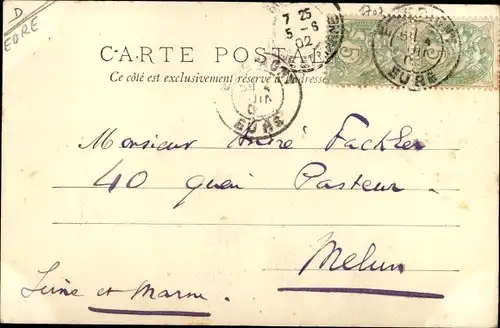 D
EORE
7 25
5 - 6
02
CARTE POSTA
Ce côté est exclusivement réservé à l'adresse
EURE
EURE
5
Monsieur André Fackler
40 quai Pasteur
Melun
Seine et Marne